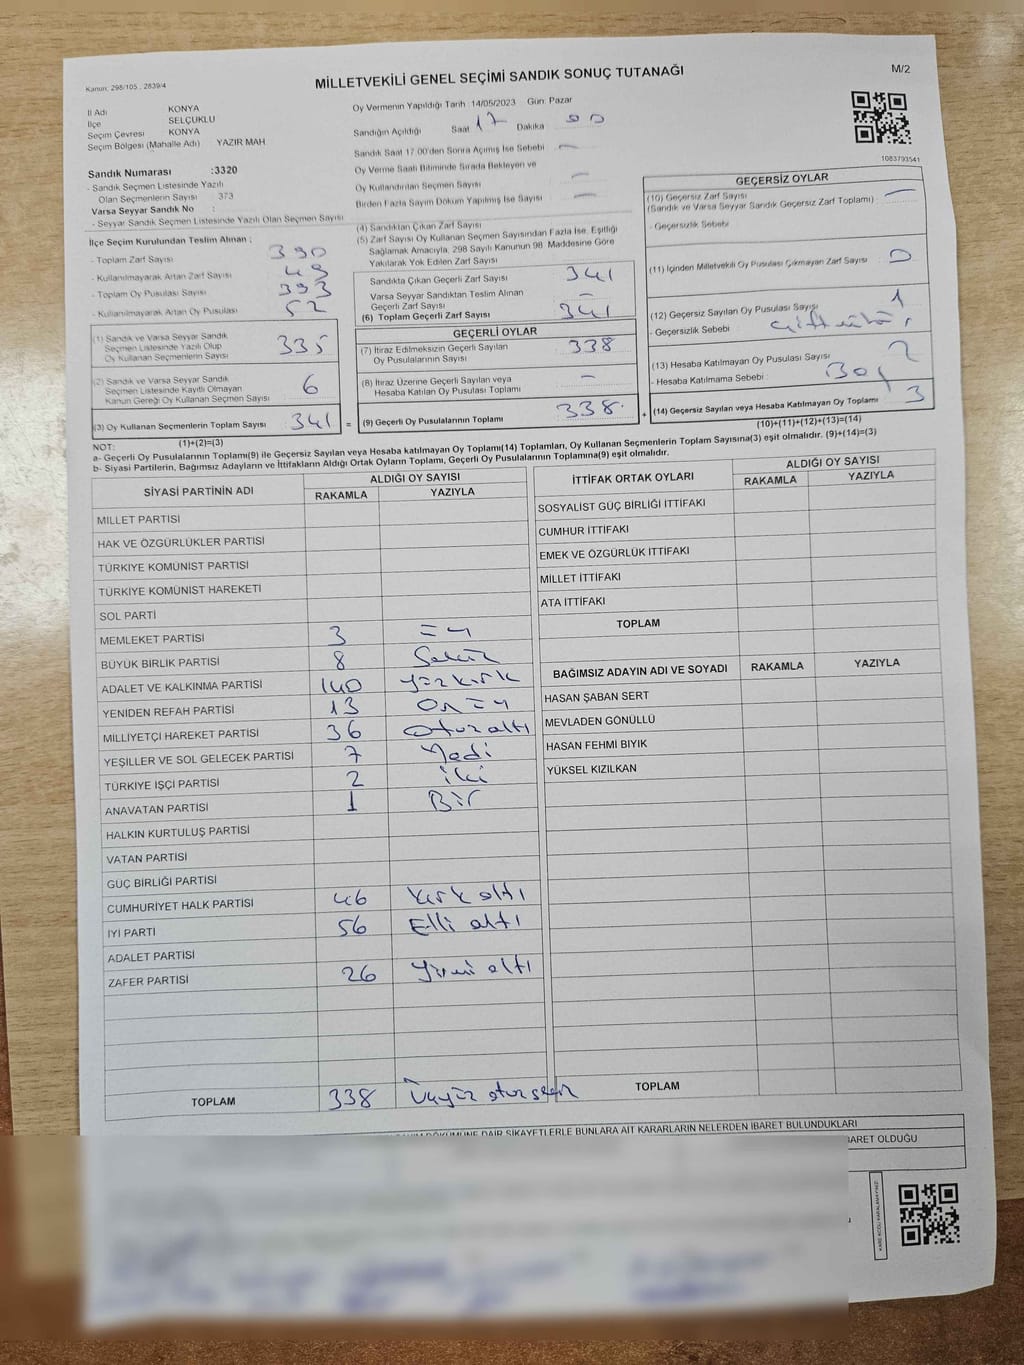 Kanun: 298/105 , 2839/4
MİLLETVEKİLİ GENEL SEÇİMİ SANDIK SONUÇ TUTANAĞI
M/2
İl Adı KONYA
İlçe SELÇUKLU
Seçim Çevresi KONYA
Seçim Bölgesi (Mahalle Adı) YAZIR MAH
Sandık Numarası :3320
- Sandık Seçmen Listesinde Yazılı
Olan Seçmenlerin Sayısı : 373
Varsa Seyyar Sandık No :
- Seyyar Sandık Seçmen Listesinde Yazılı Olan Seçmen Sayısı
İlçe Seçim Kurulundan Teslim Alınan :
- Toplam Zarf Sayısı 390
- Kullanılmayarak Artan Zarf Sayısı 49
- Toplam Oy Pusulası Sayısı 393
- Kullanılmayarak Artan Oy Pusulası 52
(1) Sandık ve Varsa Seyyar Sandık
Seçmen Listesinde Yazılı Olup
Oy Kullanan Seçmenlerin Sayısı 335
(2) Sandık ve Varsa Seyyar Sandık
Seçmen Listesinde Kayıtlı Olmayan
Kanun Gereği Oy Kullanan Seçmen Sayısı 6
(3) Oy Kullanan Seçmenlerin Toplam Sayısı 341 =
(1)+(2)=(3)
Oy Vermenin Yapıldığı Tarih :14/05/2023 Gün: Pazar
Sandığın Açıldığı Saat 17 Dakika 00
Sandık Saat 17:00'den Sonra Açımış İse Sebebi —
Oy Verme Saati Bitiminde Sırada Bekleyen ve
Oy Kullandırılan Seçmen Sayısı —
Birden Fazla Sayım Döküm Yapılmış İse Sayısı —
(4) Sandıktan Çıkan Zarf Sayısı
(5) Zarf Sayısı Oy Kullanan Seçmen Sayısından Fazla İse, Eşitliği
Sağlamak Amacıyla, 298 Sayılı Kanunun 98. Maddesine Göre
Yakılarak Yok Edilen Zarf Sayısı
Sandıkta Çıkan Geçerli Zarf Sayısı 341
Varsa Seyyar Sandıktan Teslim Alınan
Geçerli Zarf Sayısı —
(6) Toplam Geçerli Zarf Sayısı 341
GEÇERLİ OYLAR
(7) İtiraz Edilmeksizin Geçerli Sayılan
Oy Pusulalarının Sayısı 338
(8) İtiraz Üzerine Geçerli Sayılan veya
Hesaba Katılan Oy Pusulası Toplamı —
(9) Geçerli Oy Pusulalarının Toplamı 338 +
1083793541
GEÇERSİZ OYLAR
(10) Geçersiz Zarf Sayısı —
(Sandık ve Varsa Seyyar Sandık Geçersiz Zarf Toplamı)
- Geçersizlik Sebebi
(11) İçinden Milletvekili Oy Pusulası Çıkmayan Zarf Sayısı 0
(12) Geçersiz Sayılan Oy Pusulası Sayısı 1
- Geçersizlik Sebebi : Çift mühür
(13) Hesaba Katılmayan Oy Pusulası Sayısı 2
- Hesaba Katılmama Sebebi : Boş
(14) Geçersiz Sayılan veya Hesaba Katılmayan Oy Toplamı 3
(10)+(11)+(12)+(13)=(14)
NOT:
a- Geçerli Oy Pusulalarının Toplamı(9) ile Geçersiz Sayılan veya Hesaba katılmayan Oy Toplamı(14) Toplamları, Oy Kullanan Seçmenlerin Toplam Sayısına(3) eşit olmalıdır. (9)+(14)=(3)
b- Siyasi Partilerin, Bağımsız Adayların ve İttifakların Aldığı Ortak Oyların Toplamı, Geçerli Oy Pusulalarının Toplamına(9) eşit olmalıdır.
SİYASİ PARTİNİN ADI ALDIĞI OY SAYISI
RAKAMLA YAZIYLA
MİLLET PARTİSİ
HAK VE ÖZGÜRLÜKLER PARTİSİ
TÜRKİYE KOMÜNİST PARTİSİ
TÜRKİYE KOMÜNİST HAREKETİ
SOL PARTİ
MEMLEKET PARTİSİ 3 Üç
BÜYÜK BİRLİK PARTİSİ 8 Sekiz
ADALET VE KALKINMA PARTİSİ 140 Yüzkırk
YENİDEN REFAH PARTİSİ 13 Onüç
MİLLİYETÇİ HAREKET PARTİSİ 36 Otuzaltı
YEŞİLLER VE SOL GELECEK PARTİSİ 7 Yedi
TÜRKİYE İŞÇİ PARTİSİ 2 iki
ANAVATAN PARTİSİ 1 Bir
HALKIN KURTULUŞ PARTİSİ
VATAN PARTİSİ
GÜÇ BİRLİĞİ PARTİSİ
CUMHURİYET HALK PARTİSİ 46 Kırk altı
İYİ PARTİ 56 Elli altı
ADALET PARTİSİ
ZAFER PARTİSİ 26 Yirmi altı
TOPLAM 338 Üçyüz otuz sekiz
İTTİFAK ORTAK OYLARI ALDIĞI OY SAYISI
RAKAMLA YAZIYLA
SOSYALİST GÜÇ BİRLİĞİ İTTİFAKI
CUMHUR İTTİFAKI
EMEK VE ÖZGÜRLÜK İTTİFAKI
MİLLET İTTİFAKI
ATA İTTİFAKI
TOPLAM
BAĞIMSIZ ADAYIN ADI VE SOYADI RAKAMLA YAZIYLA
HASAN ŞABAN SERT
MEVLADEN GÖNÜLLÜ
HASAN FEHMİ BIYIK
YÜKSEL KIZILKAN
TOPLAM
DÖKÜMÜNE DAİR ŞİKAYETLERLE BUNLARA AİT KARARLARIN NELERDEN İBARET BULUNDUKLARI
BARET OLDUĞU